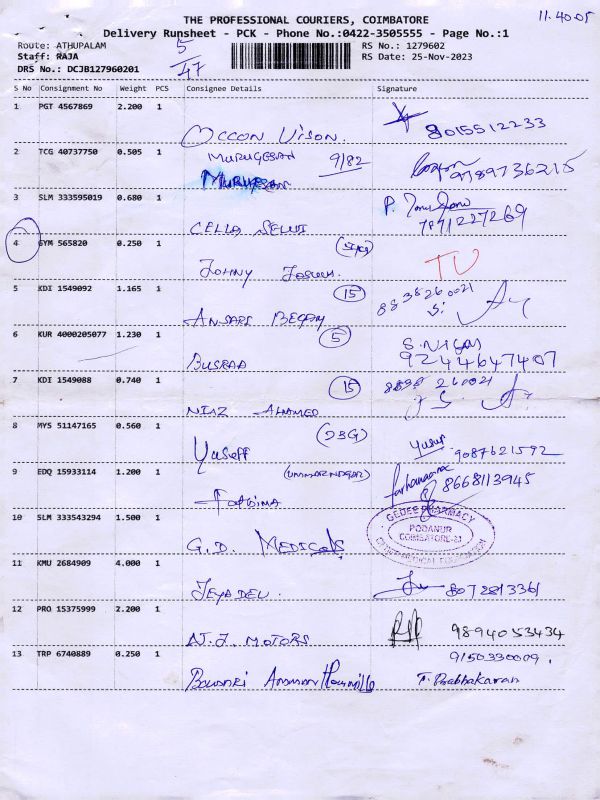 THE PROFESSIONAL COURIERS, COIMBATORE
11.40.05
Delivery Runsheet - PCK - Phone No.:0422-3505555 - Page No.:1
Route: ATHUPALAM
5
RS No.: 1279602
Staff: RAJA
47
RS Date: 25-Nov-2023
DRS No.: DCJB127960201
S No Consignment No Weight PCS Consignee Details Signature
1 PGT 4567869 2.200 1
OCCON VISON 8015512233
2 TCG 40737750 0.505 1
MURUGESAN 9/82
MURUGESAN 9789736215
3 SLM 333595019 0.680 1
CELLA SELVI P. 7871227269
4 GYM 565820 0.250 1
JOHNY TV
5 KDI 1549092 1.165 1
15 8838260021
ANSARI BEGAM
6 KUR 4000205077 1.230 1
5 S.NIGAS
BUSRAA 9244647407
7 KDI 1549088 0.740 1
15 8838 260021
NIAZ AHAMED
8 MYS 51147165 0.560 1
(23G)
Yuseff Yusuf 9087621592
9 EDQ 15933114 1.200 1
(UMMARNAGAR) farhana 8668113945
FATHIMA
10 SLM 333543294 1.500 1
GEDEE PHARMACY
PODANUR
COIMBATORE-23
G.D. MEDICALS
11 KMU 2684909 4.000 1
JEYADEV 8072813361
12 PRO 15375999 2.200 1
N.J. MOTORS 9894053434
13 TRP 6740889 0.250 1
9150330009.
T. Prabhakaran